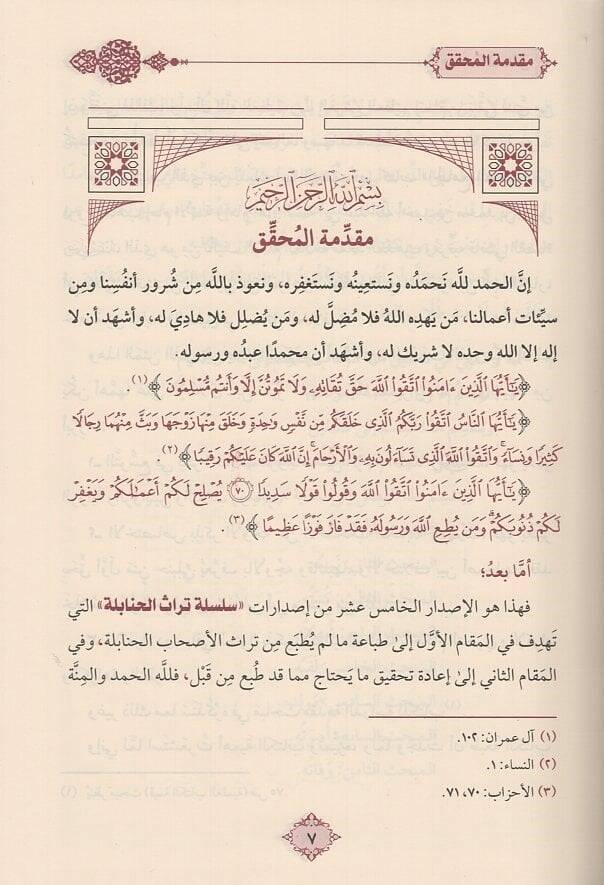 مقدمة المحقق
بسم الله الرحمن الرحيم
مقدِّمة المُحقِّق
إنَّ الحمد لله نَحمَدُه ونَستَعِينُه ونَستَغفِره، ونَعوذ بالله مِن شُرور أنفُسِنا ومِن
سيِّئات أعمالنا، مَن يَهدِه اللهُ فلا مُضِلَّ له، ومَن يُضلِل فلا هادِيَ له، وأشهَد أن لا
إله إلا الله وحده لا شريك له، وأشهَد أن محمدًا عبدُه ورسوله.
﴿يَـٰٓأَيُّهَا ٱلَّذِينَ ءَامَنُوا۟ ٱتَّقُوا۟ ٱللَّهَ حَقَّ تُقَاتِهِۦ وَلَا تَمُوتُنَّ إِلَّا وَأَنتُم مُّسْلِمُونَ﴾(١).
﴿يَـٰٓأَيُّهَا ٱلنَّاسُ ٱتَّقُوا۟ رَبَّكُمُ ٱلَّذِى خَلَقَكُم مِّن نَّفْسٍ وَٰحِدَةٍ وَخَلَقَ مِنْهَا زَوْجَهَا وَبَثَّ مِنْهُمَا رِجَالًا
كَثِيرًا وَنِسَآءً ۚ وَٱتَّقُوا۟ ٱللَّهَ ٱلَّذِى تَسَآءَلُونَ بِهِۦ وَٱلْأَرْحَامَ ۚ إِنَّ ٱللَّهَ كَانَ عَلَيْكُمْ رَقِيبًا﴾(٢).
﴿يَـٰٓأَيُّهَا ٱلَّذِينَ ءَامَنُوا۟ ٱتَّقُوا۟ ٱللَّهَ وَقُولُوا۟ قَوْلًا سَدِيدًا ٧٠ يُصْلِحْ لَكُمْ أَعْمَـٰلَكُمْ وَيَغْفِرْ
لَكُمْ ذُنُوبَكُمْ ۗ وَمَن يُطِعِ ٱللَّهَ وَرَسُولَهُۥ فَقَدْ فَازَ فَوْزًا عَظِيمًا﴾(٣).
أمَّا بعدُ؛
فهذا هو الإصدار الخامس عشر من إصدارات «سلسلة تراث الحنابلة» التي
تَهدِف في المَقام الأوَّل إلىٰ طباعة ما لم يُطبَع مِن تراث الأصحاب الحنابلة، وفي
المَقام الثاني إلىٰ إعادة تحقيق ما يَحتاج مما قد طُبع مِن قَبْل، فلله الحمد والمِنَّة
(١) آل عمران: ١٠٢.
(٢) النساء: ١.
(٣) الأحزاب: ٧٠، ٧١.
٧